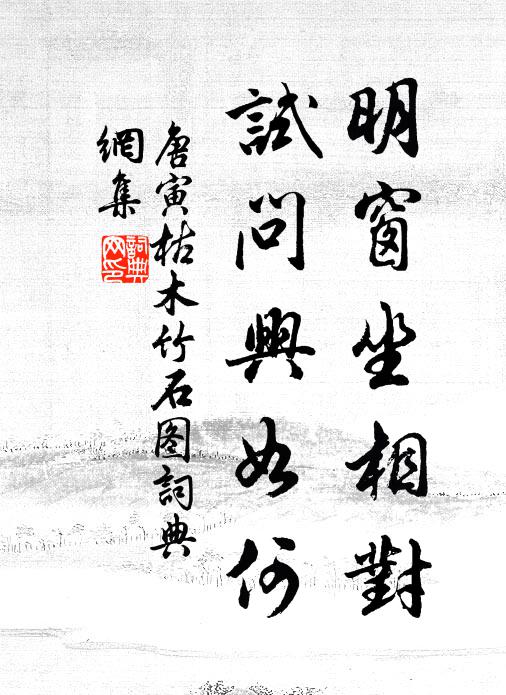 明窗坐相對
試問興如何
唐寅枯木竹石图詞典
網集
詞典
网印